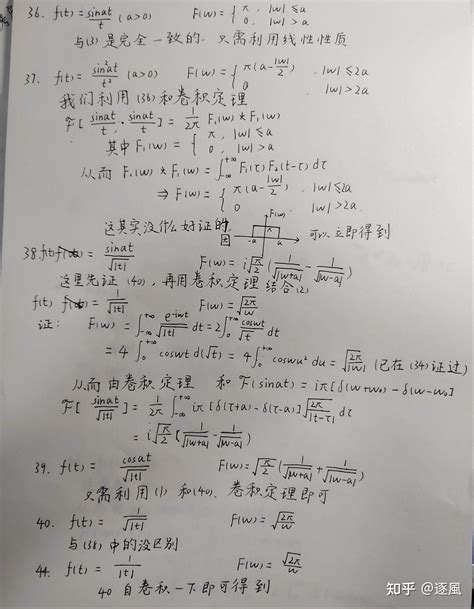 36. f(t) = sinat/t (a>0)    F(w) = { π, |w| ≤ a
0, |w| > a
与(3)是完全一致的, 只需利用线性性质
37. f(t) = sin²at/t² (a>0)    F(w) = { π(a-|w|/2), |w| ≤ 2a
0, |w| > 2a
我们利用(36)和卷积定理
F[sinat/t · sinat/t] = 1/2π F₁(w) * F₁(w)
其中 F₁(w) = { π, |w| ≤ a
0, |w| > a
从而 F₁(w) * F₁(w) = ∫_{-∞}^{+∞} F₁(τ) F₂(t-τ) dτ
⇒ F(w) = { π(a-|w|/2), |w| ≤ 2a
0, |w| > 2a
这其实没什么好证的, 因 F(w) -a a 可以立即得到
38. f(t) = sinat/√|t|    F(w) = i√(π/2) (1/√|w+a| - 1/√|w-a|)
这里先证(40), 再用卷积定理结合(2)
f(t) = 1/√|t|    F(w) = √(2π/w)
证: F(w) = ∫_{-∞}^{+∞} e^{-iwt}/√|t| dt = 2∫_0^{+∞} coswt/√t dt
= 4∫_0^{+∞} coswt d(√t) = 4∫_0^{+∞} coswu² du = √(2π/|w|) (已在(34)证过)
从而由卷积定理 和 F(sinat) = iπ[δ(w+w₀) - δ(w-w₀)]
F[sinat/√|t|] = 1/2π ∫_{-∞}^{+∞} iπ[δ(τ+a) - δ(τ-a)] √(2π/|t-τ|) dτ
= i√(π/2) [1/√|w+a| - 1/√|w-a|]
39. f(t) = cosat/√|t|    F(w) = √(π/2) (1/√|w+a| + 1/√|w-a|)
只需利用(1)和(40), 卷积定理即可
40. f(t) = 1/√|t|    F(w) = √(2π/w)
与(38)中的没区别
44. f(t) = 1/|t|    F(w) = √(2π)/w
40 自卷积一下即可得到
知乎 @逐風